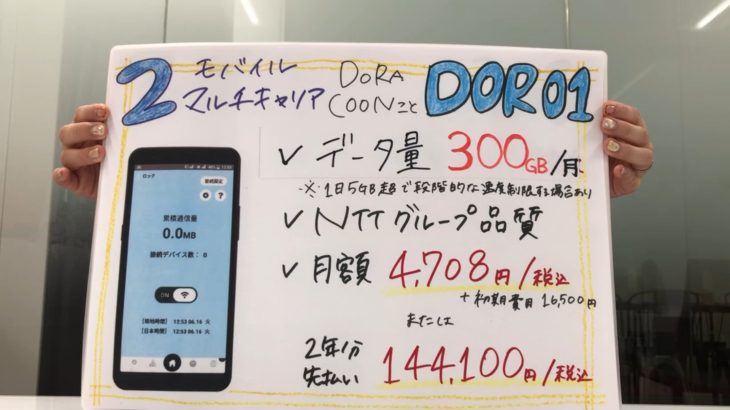 2 モバイル マルチキャリア DORACOONこと DOR01
✓ データ量 300GB/月
※1日5GB超で段階的な速度制限する場合あり
✓ NTTグループ品質
✓ 月額 4,708円/税込
+初期費用 16,500円
または
2年分先払い 144,100円/税込
ロック
接続設定
?
累積通信量
0.0MB
接続デバイス数: 0
ON
【現地時間】 12:53 06.16 火
【日本時間】 12:53 06.16 火